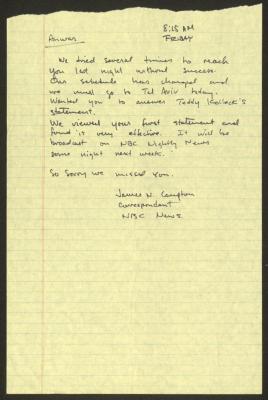 8:15 AM
FRIDAY
Anwar
We tried several times to reach
you last night without success.
Our schedule has changed and
we must go to Tel Aviv today.
Wanted you to answer Teddy Kolleck's
statement.
We viewed your first statement and
found it very effective. It will be
broadcast on NBC Nightly News
some night next week.
So sorry we missed you.
James N. Compton
Correspondent
NBC News